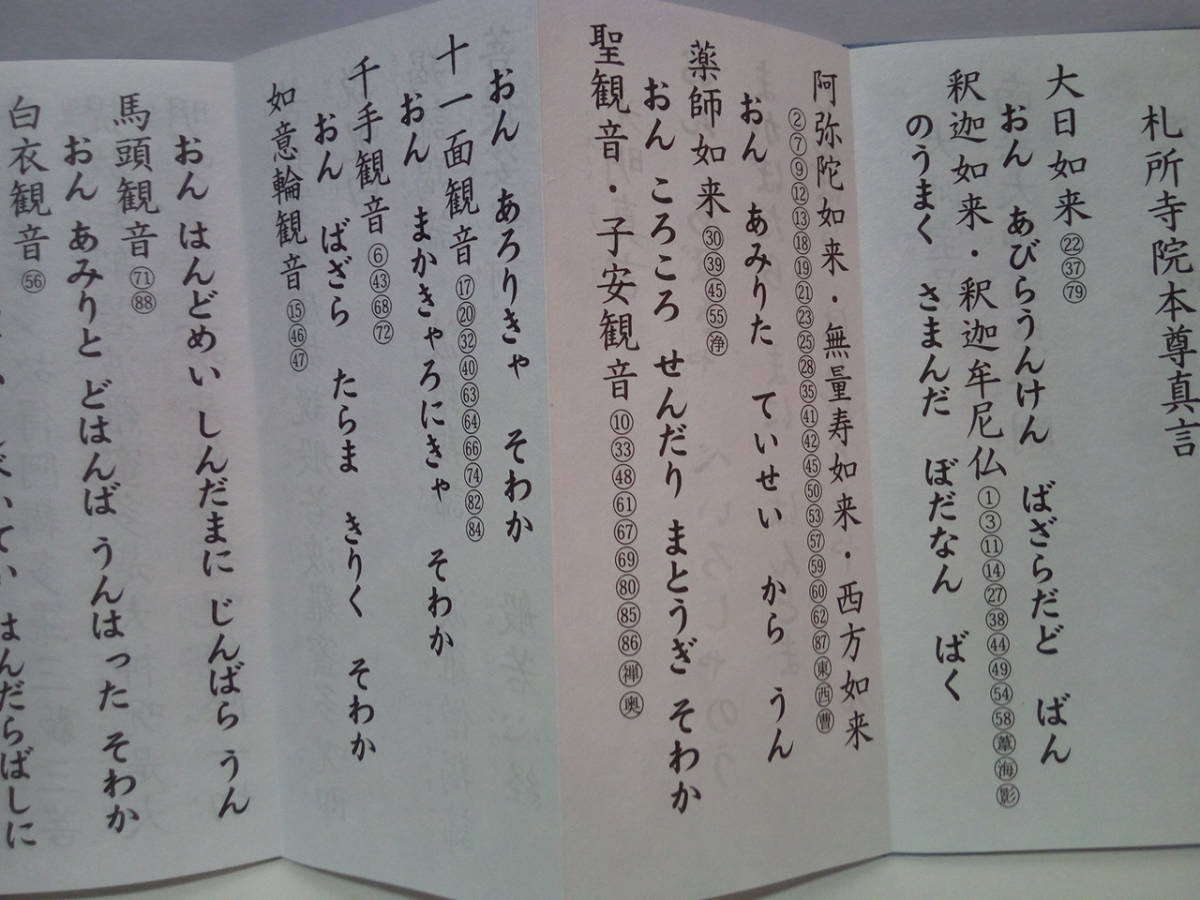 札所寺院本尊真言
大日如来㉒㊲79
おん あびらうんけん ばざらだど ばん
釈迦如来・釈迦牟尼仏①③⑪⑭㉗㊳㊹㊾54 58葦海影
のうまく さまんだ ぼだなん ばく
阿弥陀如来・無量寿如来・西方如来
②⑦⑨⑫⑬⑱⑲㉑㉓㉕㉘㉟㊶㊷㊺㊿53 57 59 60 62 87東西曹
おん あみりた ていせい から うん
薬師如来㉚㊴㊺55浄
おん ころころ せんだり まとうぎ そわか
聖観音・子安観音⑩㉝㊽61 67 69 80 85 86禅奥
おん あろりきゃ そわか
十一面観音⑰⑳㉜㊵63 64 66 74 82 84
おん まかきゃろにきゃ そわか
千手観音⑥㊸68 72
おん ばざら たらま きりく そわか
如意輪観音⑮㊻㊼
おん はんどめい しんだまに じんばら うん
馬頭観音71 88
おん あみりと どはんば うんはった そわか
白衣観音56
はんだらばしに